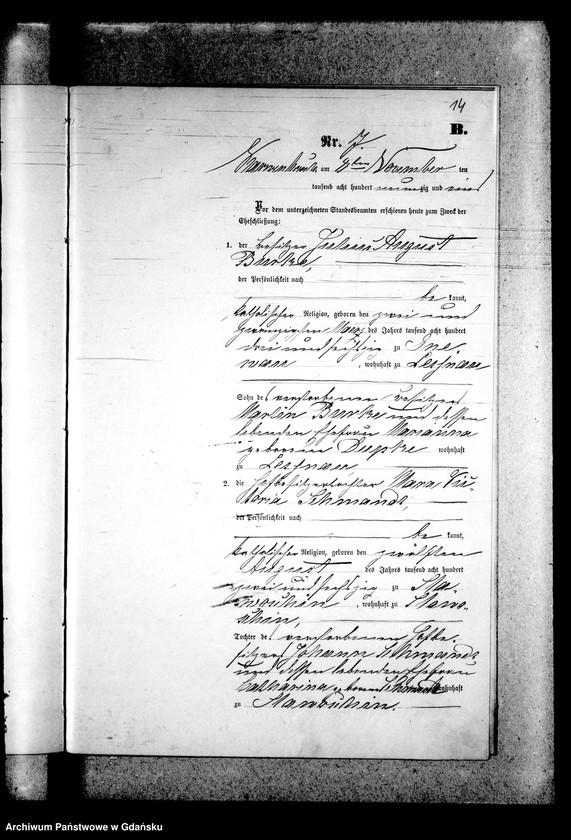 14
B.
Nr. 7.
am 9ten November ten
tausend acht hundert neunzig und eins
Vor dem unterzeichneten Standesbeamten erschienen heute zum Zweck der
Eheschließung:
1. der Besitzer Julius August
Burke,
der Persönlichkeit nach
be kannt,
katholischer Religion, geboren den zwei und
zwanzigsten März des Jahrs tausend acht hundert
drei und sechszig zu
, wohnhaft zu Lesnau
Sohn des verstorbenen Besitzers
Martin Burke und dessen
lebenden Ehefrau Marianna
geborenen wohnhaft
zu Lesnau
2. die Hofbesitzertochter Maria Vic-
toria Schmandt,
der Persönlichkeit nach
be kannt,
katholischer Religion, geboren den zwölften
August des Jahrs tausend acht hundert
zwei und sechszig zu Sla-
woschin , wohnhaft zu Slawo-
schin,
Tochter des verstorbenen Hofbe-
sitzers Johann Schmandt
und dessen lebenden Ehefrau
Catharina geborenen wohnhaft
zu Slawoschin.
Archiwum Państwowe w Gdańsku